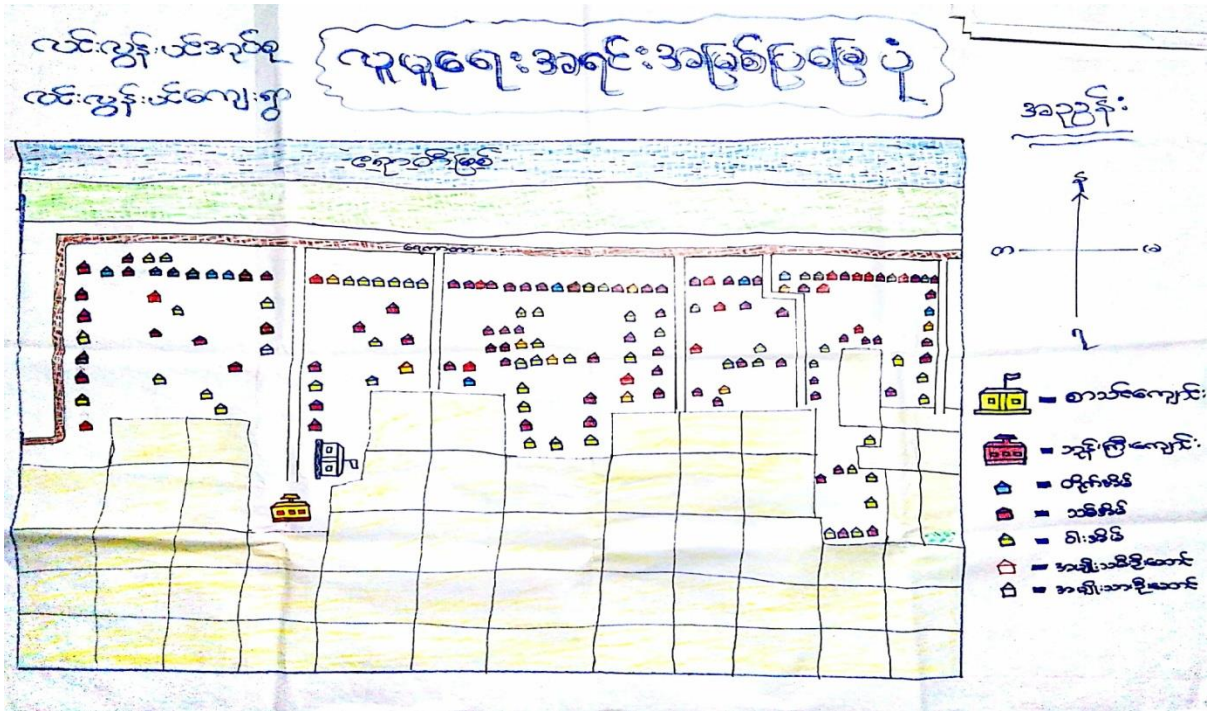 လင်းလွန်းပင်အုပ်စု
လင်းလွန်းပင်ကျေးရွာ
လူမှုရေးအရင်းအမြစ်ပြမြေပုံ
ဧရာဝတီမြစ်
ရေကာတာ
အညွှန်း
စာသင်ကျောင်း
ဘုန်းကြီးကျောင်း
တိုက်အိမ်
သစ်အိမ်
ဝါးအိမ်
အမျိုးသမီးဦးဆောင်
အမျိုးသားဦးဆောင်